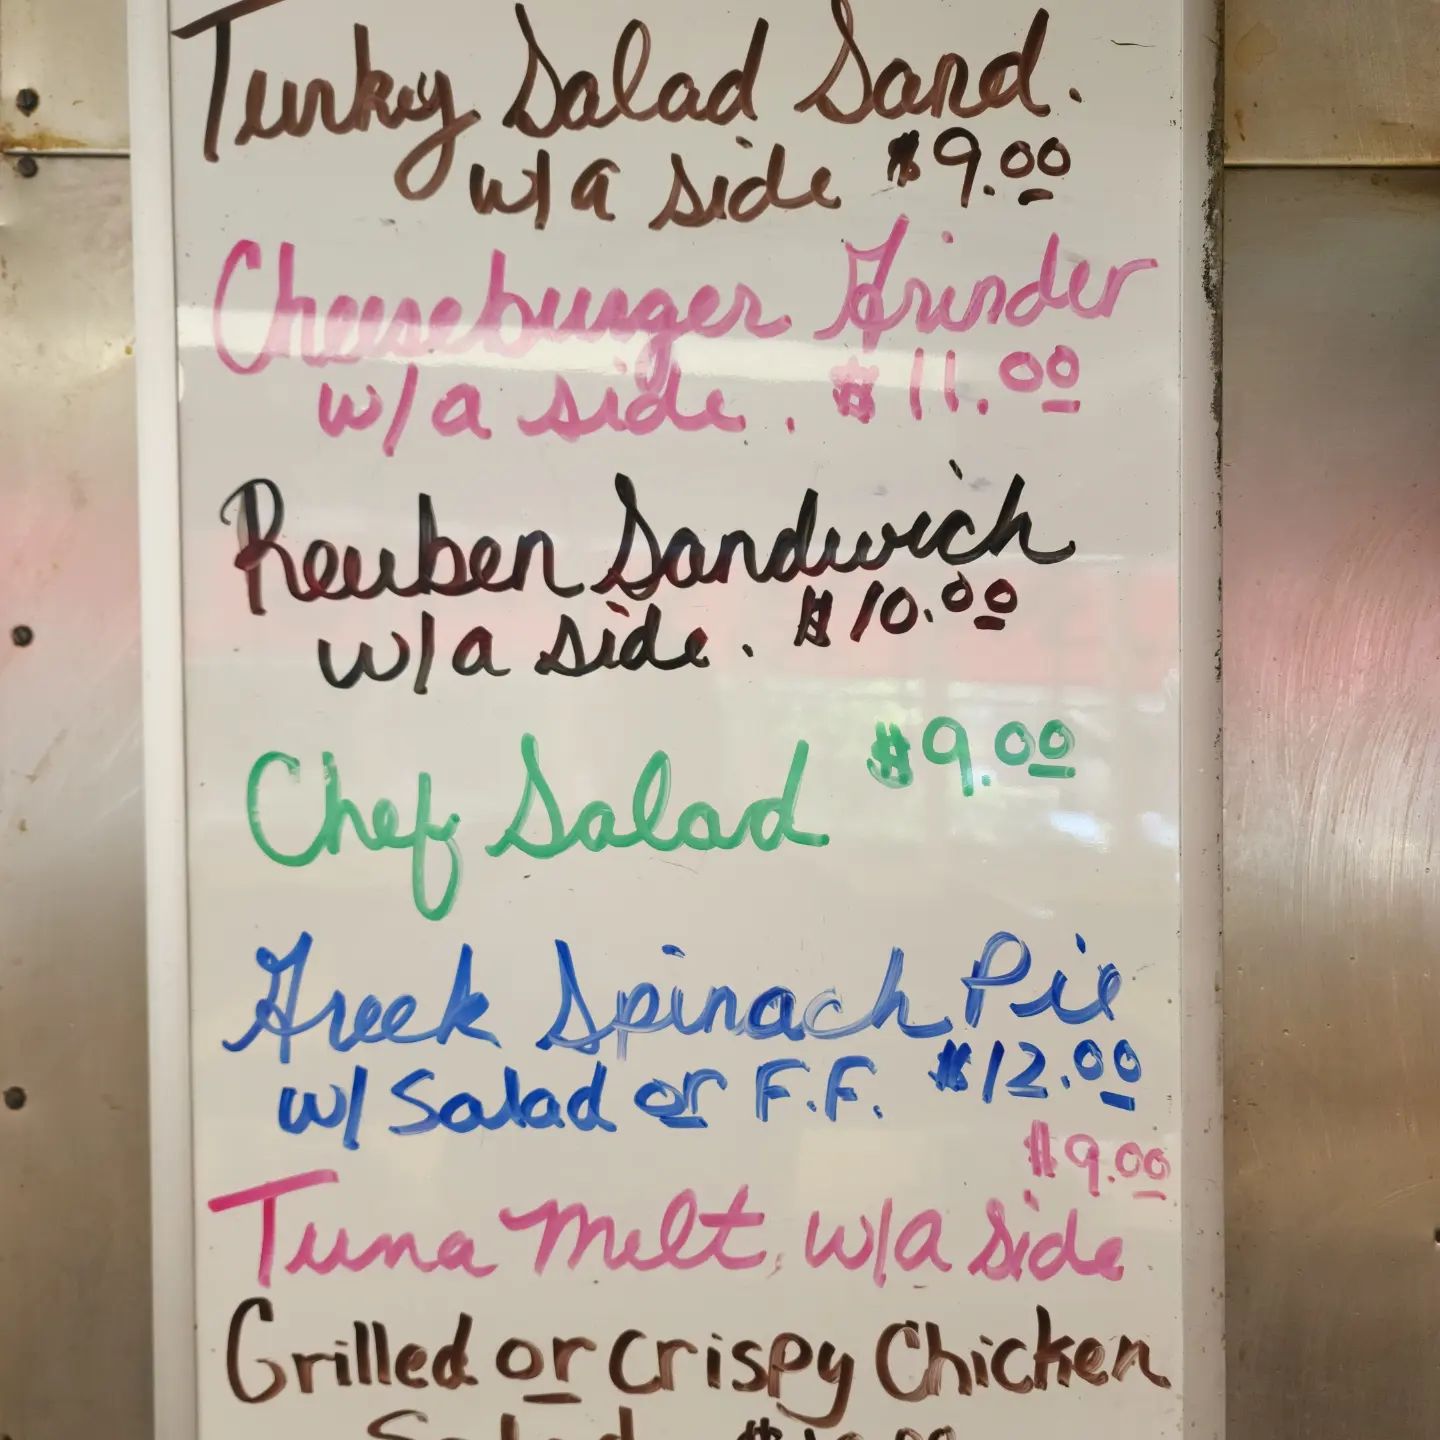 Turkey Salad Sand.
w/a side $9.00
Cheeseburger Grinder
w/a side. $11.00
Reuben Sandwich
w/a side. $10.00
Chef Salad $9.00
Greek Spinach Pie
w/ Salad or F.F. $12.00
$9.00
Tuna Melt w/a side
Grilled or Crispy Chicken
Salad